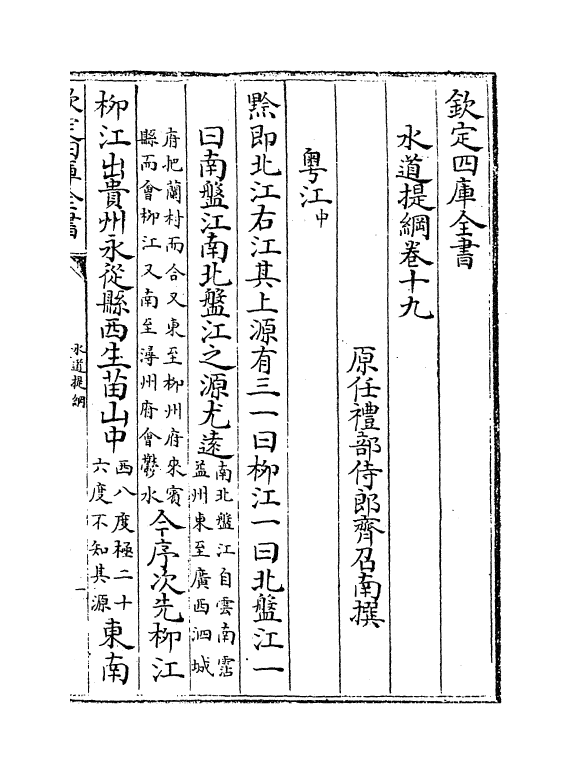 欽定四庫全書
水道提綱卷十九
原任禮部侍郎齊召南撰
粤江中
黔即北江右江其上源有三一曰柳江一曰北盤江一
曰南盤江南北盤江之源尤遠南北盤江自雲南霑益州東至廣西泗城
府把蘭村而合又東至柳州府來賓縣而會柳江又南至潯州府會鬱水今序次先柳江
柳江出貴州永從縣西生苗山中西八度極二十六度不知其源東南
欽定四庫全書
水道提綱
一